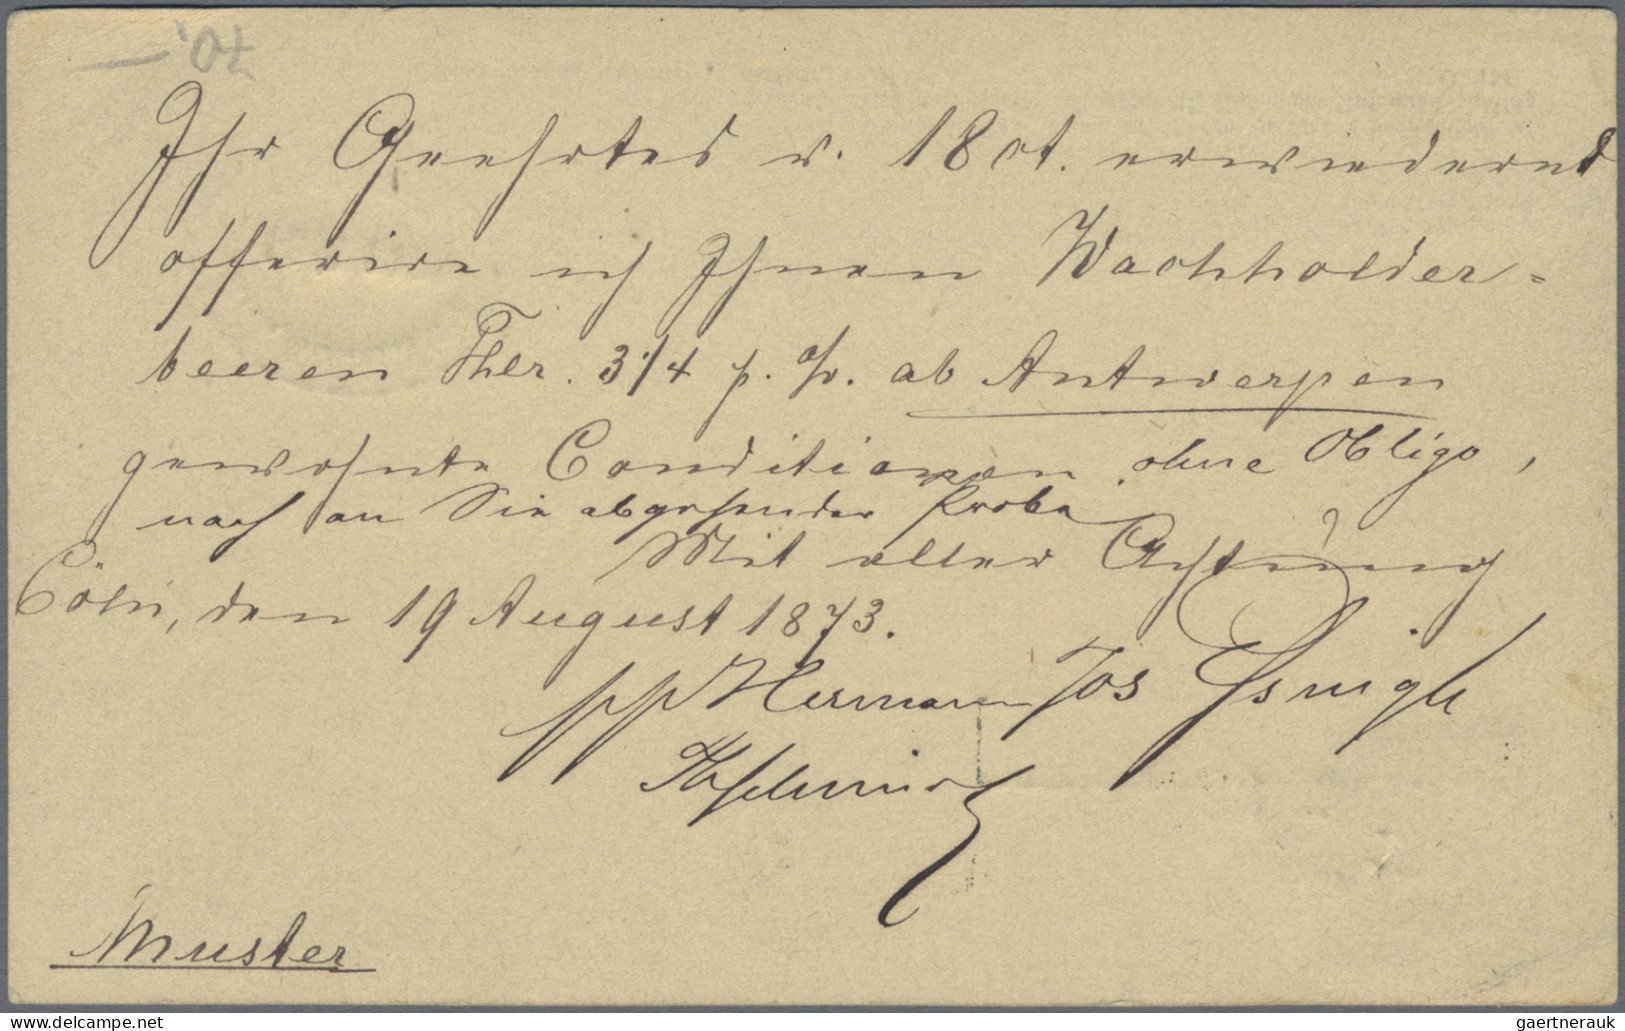 70.–
Ihr Geehrtes v. 18 ct. erwiedernd
offerire ich Ihnen Wachholder-
beeren Thlr. 3 1/4 p. % ab Antwerpen
gewohnte Conditionen, ohne Obligo,
nach an Sie abgehender Probe
Mit aller Achtung
Cöln, den 19 August 1873.
pp Hermann Jos
Muster
www.delcampe.net
gaertnerauk